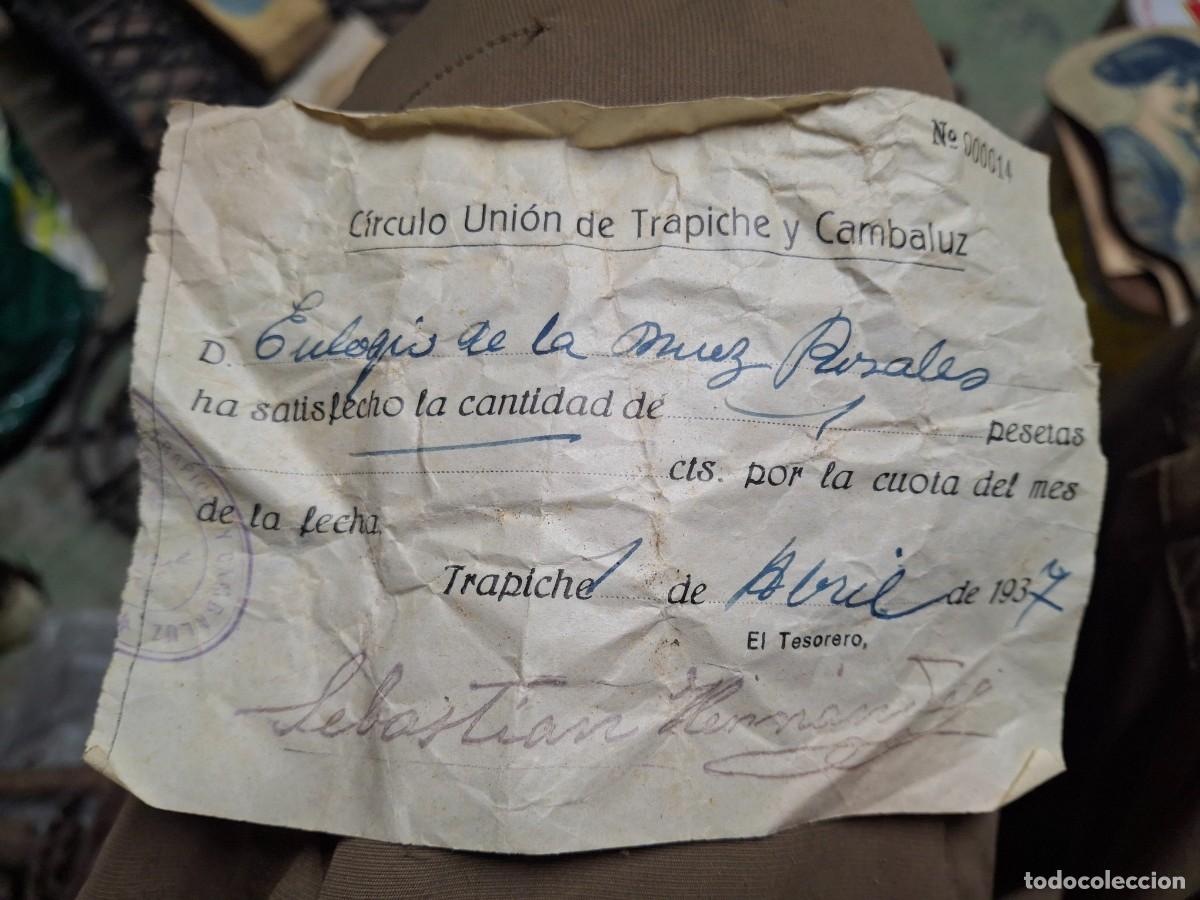 Nº 000014
Círculo Unión de Trapiche y Cambaluz
D. Eulogio de la Nuez Rosales
ha satisfecho la cantidad de 1 pesetas
cts. por la cuota del mes
de la fecha
Trapiche 1 de Abril de 1937
El Tesorero,
Sebastian Hernández
CAMBALUZ
todocoleccion